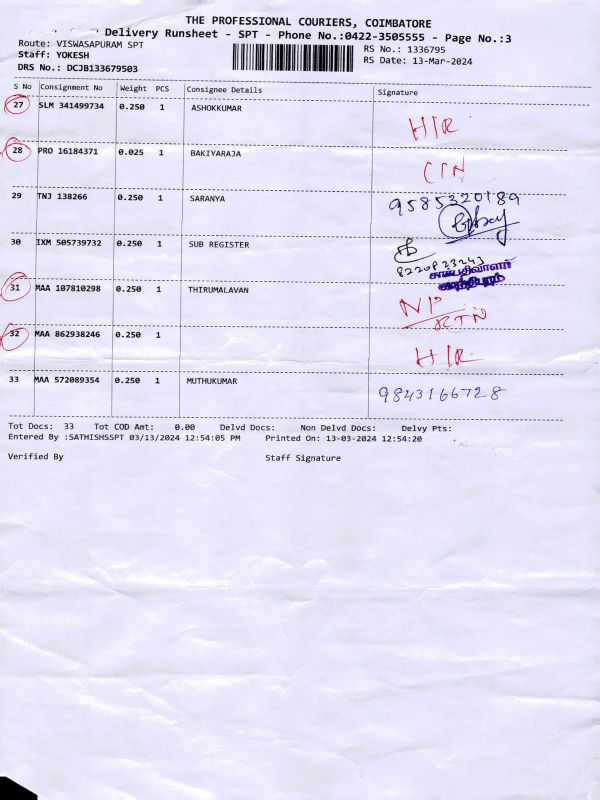 THE PROFESSIONAL COURIERS, COIMBATORE
Delivery Runsheet - SPT - Phone No.:0422-3505555 - Page No.:3
Route: VISWASAPURAM SPT
RS No.: 1336795
Staff: YOKESH
RS Date: 13-Mar-2024
DRS No.: DCJB133679503
S No Consignment No Weight PCS Consignee Details Signature
27 SLM 341499734 0.250 1 ASHOKKUMAR
H/R
28 PRO 16184371 0.025 1 BAKIYARAJA
29 TNJ 138266 0.250 1 SARANYA 9585320189
30 IXM 505739732 0.250 1 SUB REGISTER
31 MAA 107810298 0.250 1 THIRUMALAVAN
32 MAA 862938246 0.250 1
H/R
33 MAA 572089354 0.250 1 MUTHUKUMAR 9843166728
Tot Docs: 33 Tot COD Amt: 0.00 Delvd Docs: Non Delvd Docs: Delvy Pts:
Entered By :SATHISHSSPT 03/13/2024 12:54:05 PM Printed On: 13-03-2024 12:54:20
Verified By Staff Signature